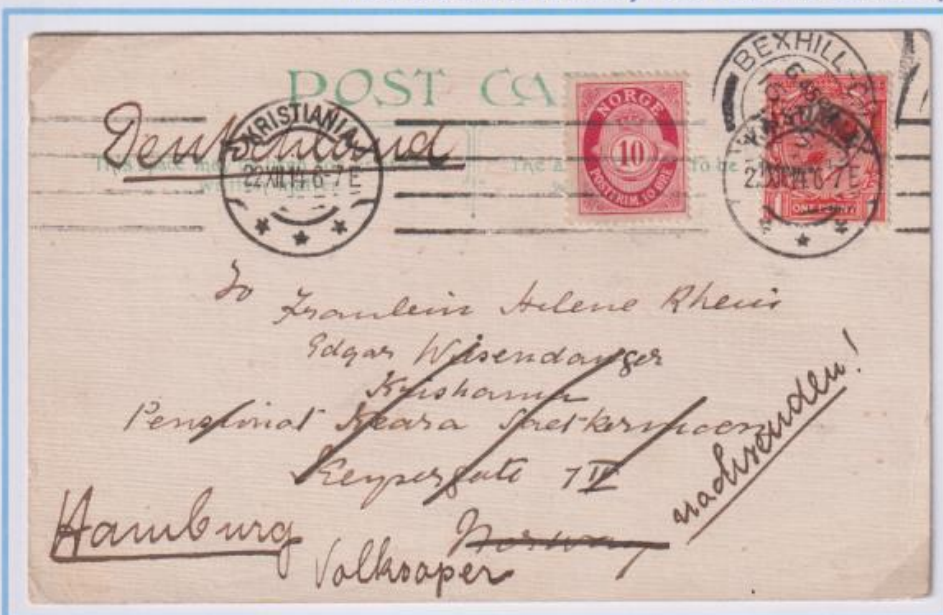 POST CA
Deutschland
This space m
The a to be
KRISTIANIA
22XII.14.6-7E
NORGE
10
POSTFRIM. TO ØRE
BEXHILL-
6.45PM
22XII.14.6-7E
ONE PENNY
To
Fraulein Helene Rhein
Edgar Wiesendanger
Kristiania
Pensionat Keara
Keysergate 7 IV
Norway
nachsenden!
Hamburg
Volksoper